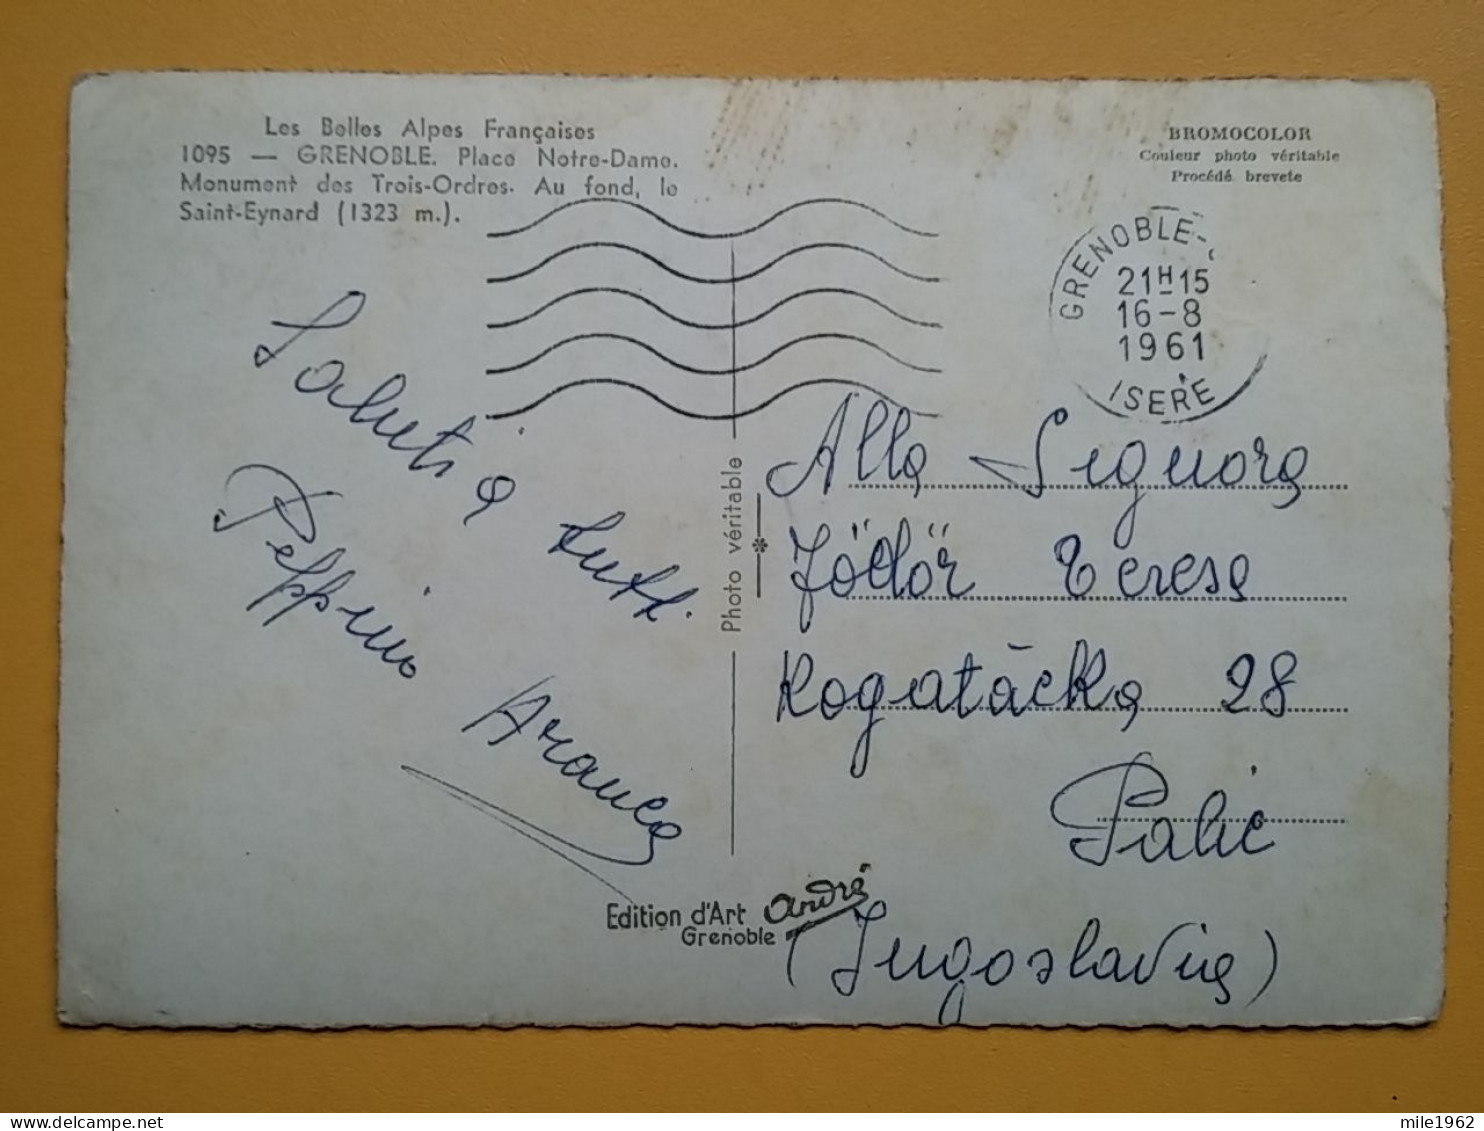 Les Belles Alpes Françaises
1095 — GRENOBLE. Place Notre-Dame.
Monument des Trois-Ordres. Au fond, le
Saint-Eynard (1323 m.).
BROMOCOLOR
Couleur photo véritable
Procédé brevete
GRENOBLE-
21H15
16-8
1961
ISERE
Saluti a tutti
Peppino Aranca
Photo véritable
Alla Signora
Födör Terese
Rogatačka 28
Palić
(Jugoslavia)
Edition d'Art André
Grenoble
mile1962